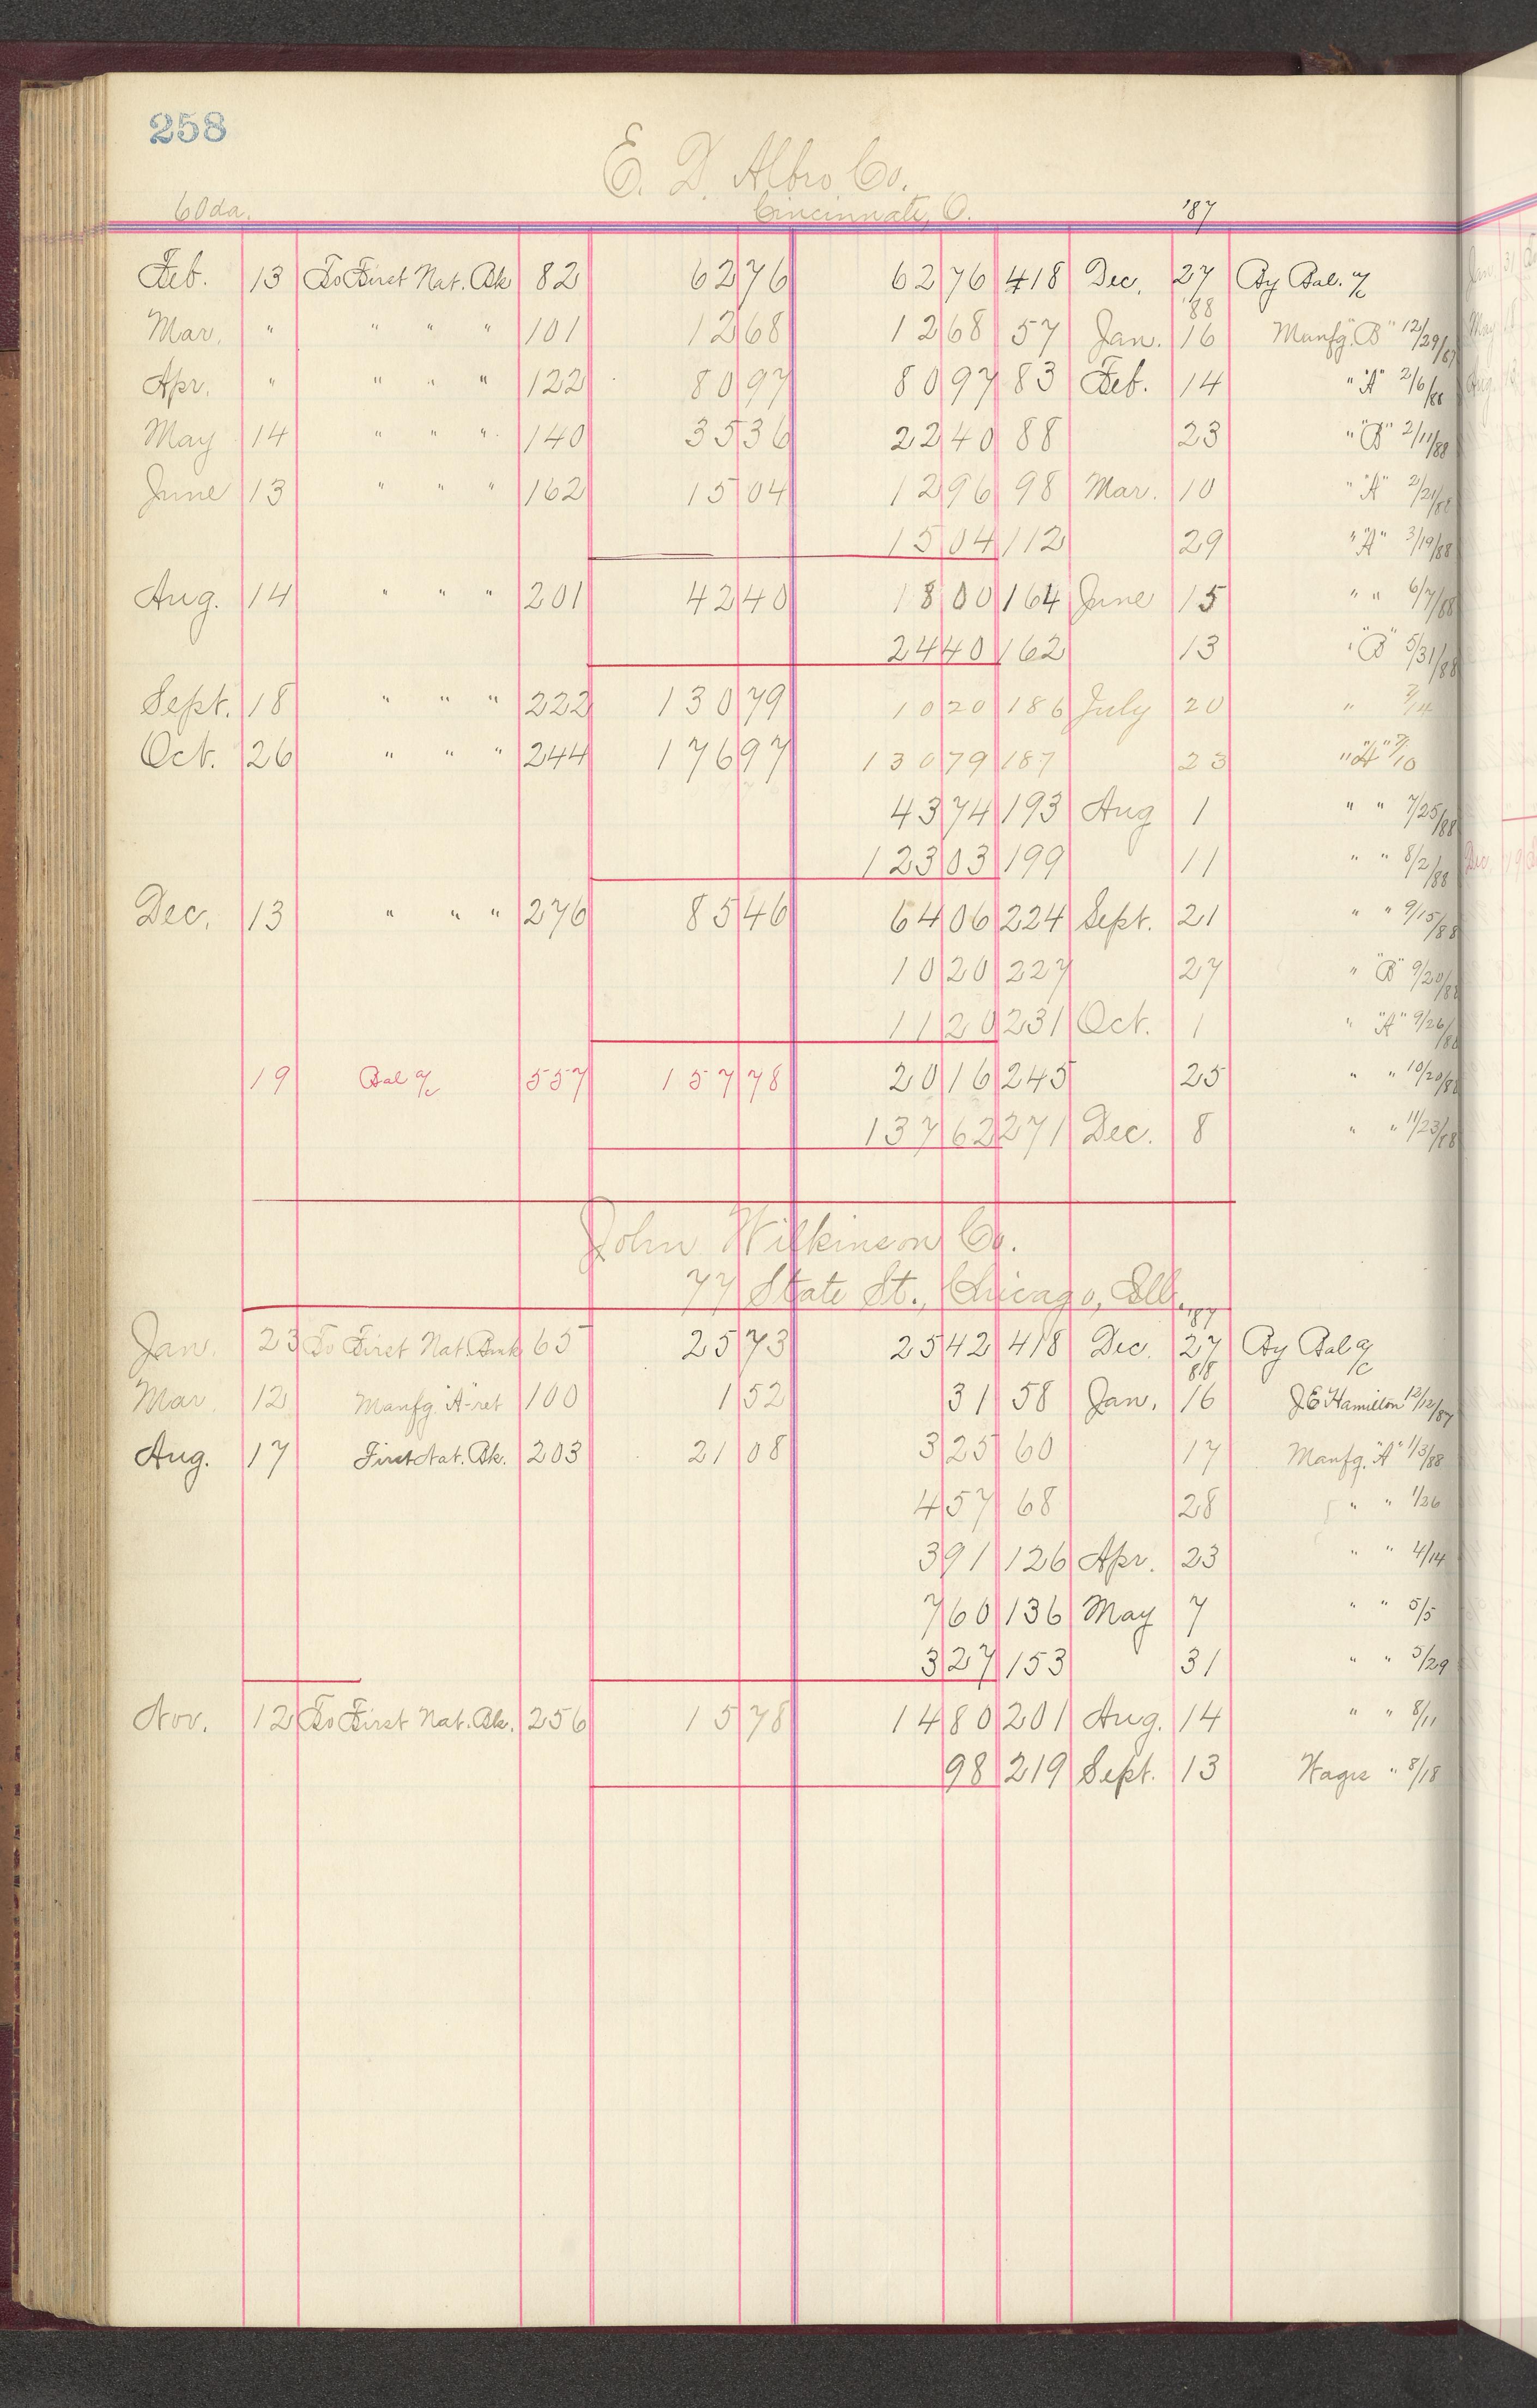 258
E. D. Albro Co.
60 da. Cincinnati, O. '87
Feb. 13 To First Nat. Bk 82 62 76 62 76 418 Dec. 27 By Bal. a/c
'88
Mar. " " " " 101 12 68 12 68 57 Jan. 16 Manfg. "B" 12/29/87
Apr. " " " " 122 80 97 80 97 83 Feb. 14 " "A" 2/6/88
May 14 " " " 140 35 36 22 40 88 23 " "B" 2/11/88
June 13 " " " 162 15 04 12 96 98 Mar. 10 " "A" 2/21/88
15 04 112 29 " "A" 3/19/88
Aug. 14 " " " 201 42 40 18 00 164 June 15 " " 6/7/88
24 40 162 13 " "B" 5/31/88
Sept. 18 " " " 222 130 79 10 20 186 July 20 " 7/14
Oct. 26 " " " 244 176 97 130 79 187 23 " "A" 7/10
43 74 193 Aug 1 " " 7/25/88
123 03 199 11 " " 8/2/88
Dec. 13 " " " 276 85 46 64 06 224 Sept. 21 " " 9/15/88
10 20 227 27 " "B" 9/20/88
11 20 231 Oct. 1 " "A" 9/26/88
19 Bal a/c 557 157 78 20 16 245 25 " " 10/20/88
137 62 271 Dec. 8 " " 11/23/88
John Wilkinson Co.
77 State St., Chicago, Ill.
'87
Jan. 23 To First Nat. Bnk 65 25 73 25 42 418 Dec. 27 By Bal a/c
88
Mar. 12 Manfg. "A" ret 100 1 52 31 58 Jan. 16 J E Hamilton 12/12/87
Aug. 17 First Nat. Bk. 203 21 08 3 25 60 17 Manfg. "A" 1/3/88
4 57 68 28 " " 1/26
3 91 126 Apr. 23 " " 4/14
7 60 136 May 7 " " 5/5
3 27 153 31 " " 5/29
Nov. 12 To First Nat. Bk. 256 15 78 14 80 201 Aug. 14 " " 8/11
98 219 Sept. 13 " 8/18